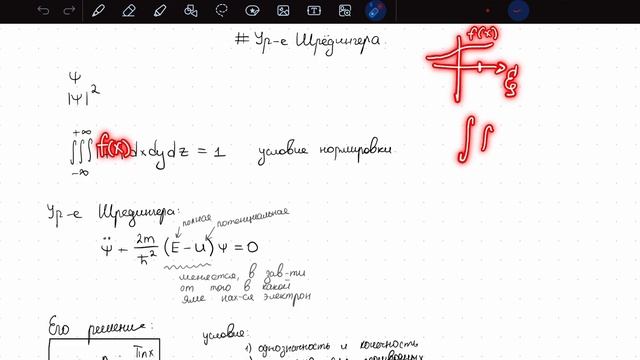 # Ур-е Шрёдингера
f(x)
Ψ
|Ψ|²
+∞
∫∫∫ f(x) dxdydz = 1 условие нормировки
-∞
∫∫
Ур-е Шрёдингера:
полная потенциальная
Ψ̈ + 2m/ħ² (E - U) Ψ = 0
меняется, в зав-ти
от того в какой
яме нах-ся электрон
Его решение:
условие:
πnx
1) однозначность и конечность